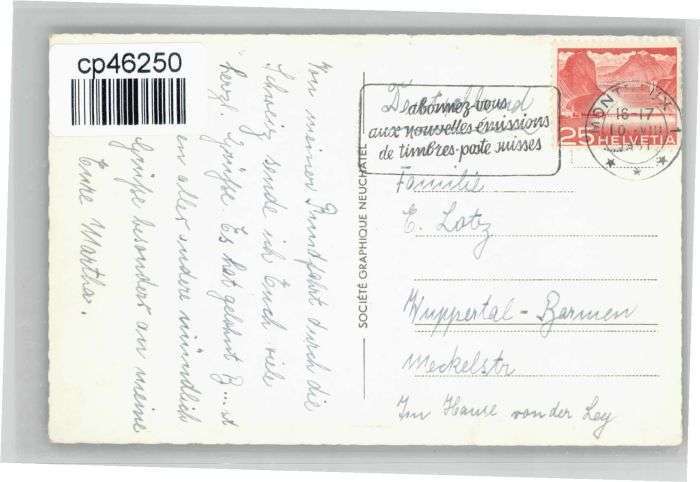 cp46250
Von meiner Rundfahrt durch die
Schweiz sende ich Euch viele
herzl. Grüße. Es hat gelohnt
en alles andere mündlich
Grüße besonders an meine
Eure Martha.
SOCIÉTÉ GRAPHIQUE NEUCHATEL
abonnez-vous
aux nouvelles émissions
de timbres-poste suisses
MONTREUX 1
18-17
10. VIII
25 HELVETIA
Deutschland
Familie
E. Lotz
Wuppertal-Barmen
Meckelstr
Im Hause von der Ley